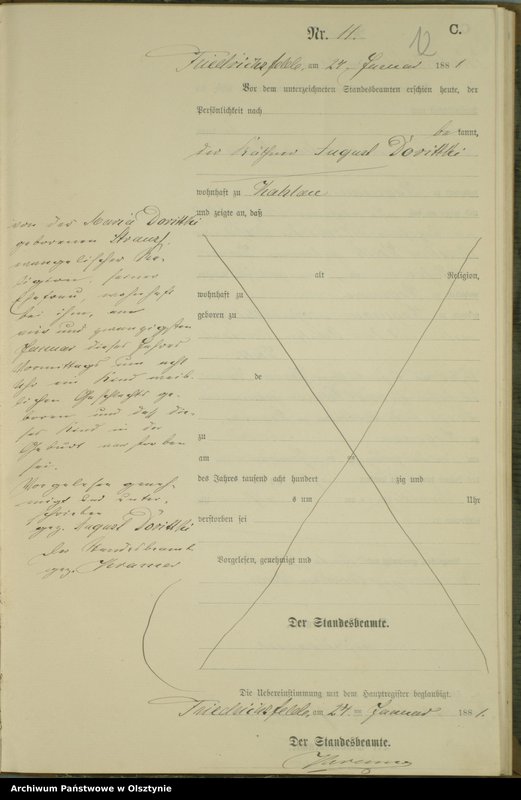 Nr. 11.
12
C.
Friedrichsfelde, am 24. Januar 1881
Vor dem unterzeichneten Standesbeamten erschien heute, der
Persönlichkeit nach
be kannt,
der Käthner August Dorittki
wohnhaft zu
und zeigte an, daß
von der Maria Dorittki
geborenen
evangelischer Re-
ligion, seiner
Ehefrau, wohnhaft
bei ihm, am
und zwanzigsten
Januar dieses Jahres
Vormittags um acht
Uhr ein Kind weib-
lichen Geschlechts ge-
boren und daß die-
ses Kind in der
Geburt verstorben
sei.
Vorgelesen geneh-
migt und unter-
schrieben
gez. August Dorittki
Der Standesbeamte
gez.
alt Religion,
wohnhaft zu
geboren zu
de
zu
am
des Jahres tausend acht hundert zig und
s um Uhr
verstorben sei
Vorgelesen, genehmigt und
Der Standesbeamte.
Die Uebereinstimmung mit dem Hauptregister beglaubigt.
Friedrichsfelde, am 24. Januar 1881.
Der Standesbeamte.
Archiwum Państwowe w Olsztynie